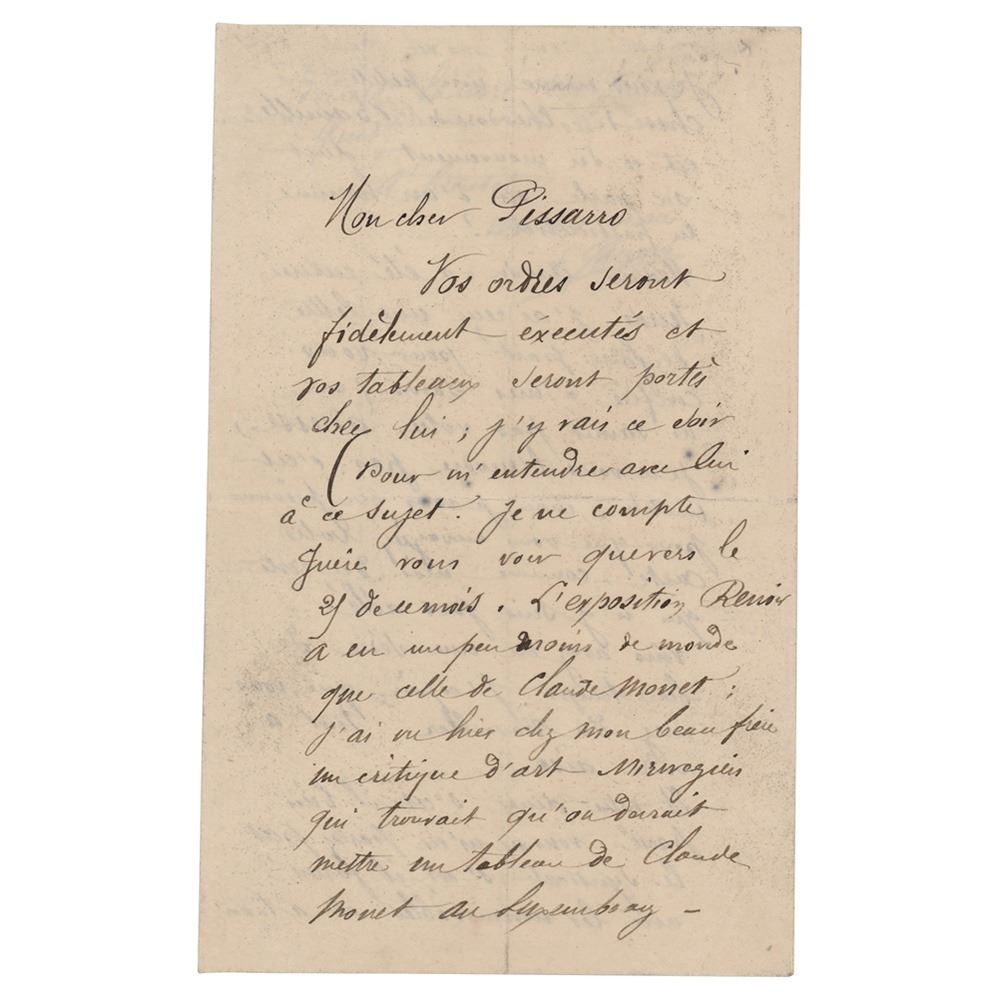 Mon cher Pissarro
Vos ordres seront
fidèlement éxecutés et
vos tableaux seront portés
chez lui ; j'y vais ce soir
(pour m'entendre avec lui
à ce sujet. Je ne compte
guère vous voir que vers le
25 de ce mois. L'exposition Renoir
a eu un peu moins de monde
que celle de Claude Monet ;
j'ai vu hier chez mon beau frère
un critique d'art Norvegien
qui trouvait qu'on devrait
mettre un tableau de Claude
Monet au Luxembourg –